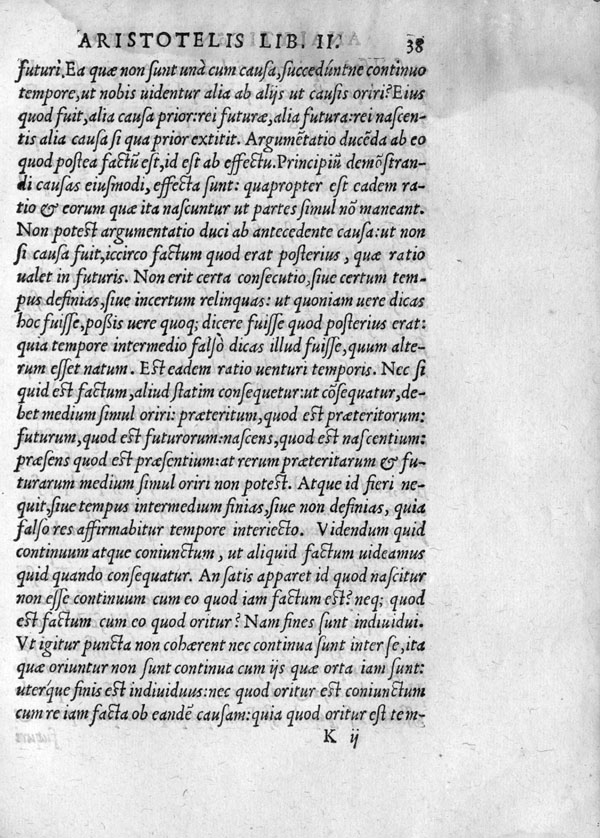 ARISTOTELIS LIB. II. 38
futuri. Ea quæ non sunt unà cum causa, succedúntne continuo
tempore, ut nobis uidentur alia ab alijs ut causis oriri? Eius
quod fuit, alia causa prior: rei futuræ, alia futura: rei nascen-
tis alia causa si qua prior extitit. Argumẽtatio ducẽda ab eo
quod postea factũ est, id est ab effectu. Principiũ demõstran-
di causas eiusmodi, effecta sunt: quapropter est eadem ra-
tio & eorum quæ ita nascuntur ut partes simul nõ maneant.
Non potest argumentatio duci ab antecedente causa: ut non
si causa fuit, iccirco factum quod erat posterius, quæ ratio
ualet in futuris. Non erit certa consecutio, siue certum tem-
pus definias, siue incertum relinquas: ut quoniam uere dicas
hoc fuisse, possis uere quoq; dicere fuisse quod posterius erat:
quia tempore intermedio falsò dicas illud fuisse, quum alte-
rum esset natum. Est eadem ratio uenturi temporis. Nec si
quid est factum, aliud statim consequetur: ut cõsequatur, de-
bet medium simul oriri: præteritum, quod est præteritorum:
futurum, quod est futurorum: nascens, quod est nascentium:
præsens quod est præsentium: at rerum præteritarum & fu-
turarum medium simul oriri non potest. Atque id fieri ne-
quit, siue tempus intermedium finias, siue non definias, quia
falso res affirmabitur tempore interiecto. Videndum quid
continuum atque coniunctum, ut aliquid factum uideamus
quid quando consequatur. An satis apparet id quod nascitur
non esse continuum cum eo quod iam factum est? neq; quod
est factum cum eo quod oritur? Nam fines sunt indiuidui.
Vt igitur puncta non cohærent nec continua sunt inter se, ita
quæ oriuntur non sunt continua cum ijs quæ orta iam sunt:
uterque finis est indiuiduus: nec quod oritur est coniunctum
cum re iam facta ob eandẽ causam: quia quod oritur est tem-
K ij